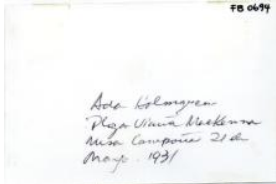 FB 0694
Ada Holmgren
Plaza Vicuña Mackenna
Misa Campaña 21 de
Mayo. 1931